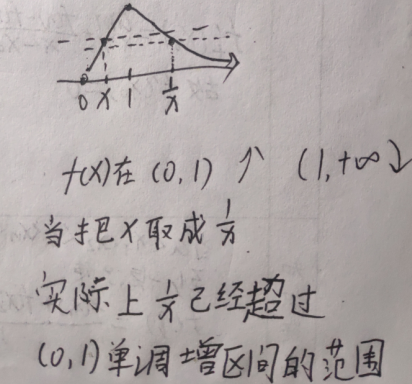 0 x 1 1/x
f(x)在(0,1)↑ (1,+∞)↓
当把x取成1/x
实际上1/x已经超过
(0,1)单调增区间的范围